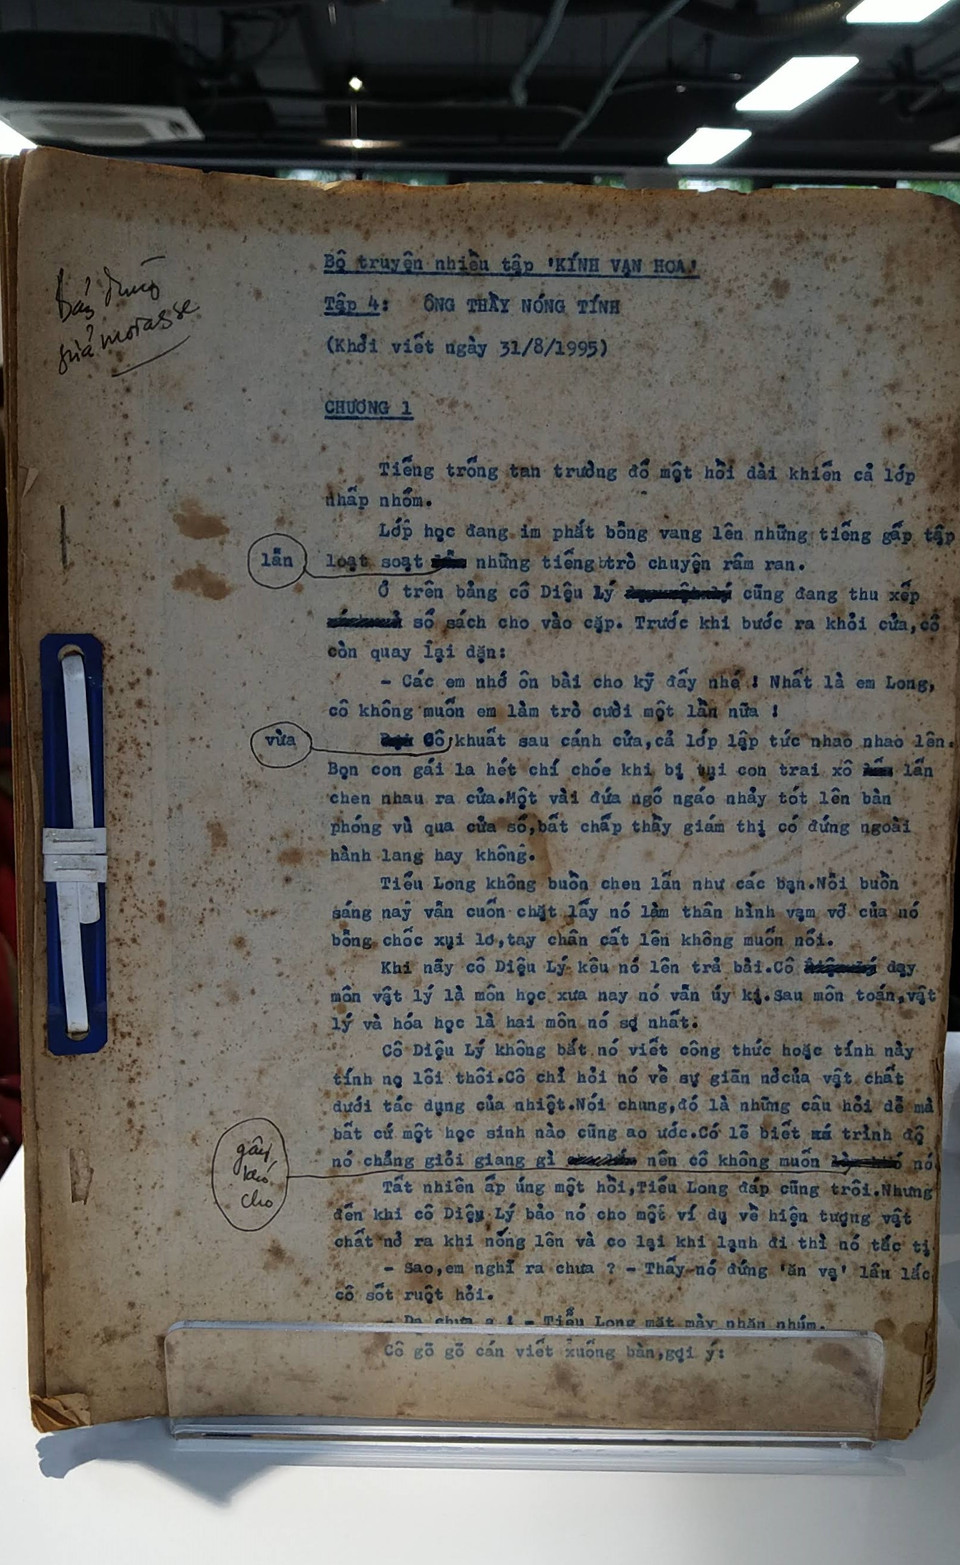 giả morasse
Bộ truyện nhiều tập 'KÍNH VẠN HOA'
Tập 4: ÔNG THẦY NÓNG TÍNH
(Khởi viết ngày 31/8/1995)
CHƯƠNG 1
Tiếng trống tan trường đổ một hồi dài khiến cả lớp
nhấp nhổm.
Lớp học đang im phắt bỗng vang lên những tiếng gấp tập
lẫn
loạt soạt những tiếng trò chuyện râm ran.
Ở trên bảng cô Diệu Lý cũng đang thu xếp
sổ sách cho vào cặp. Trước khi bước ra khỏi cửa,cô
còn quay lại dặn:
- Các em nhớ ôn bài cho kỹ đấy nhé ! Nhất là em Long,
cô không muốn em làm trò cười một lần nữa !
vừa
Cô khuất sau cánh cửa,cả lớp lập tức nhao nhao lên.
Bọn con gái la hét chí chóe khi bị tụi con trai xô lấn
chen nhau ra cửa.Một vài đứa ngổ ngáo nhảy tót lên bàn
phóng vù qua cửa sổ,bất chấp thầy giám thị có đứng ngoài
hành lang hay không.
Tiểu Long không buồn chen lấn như các bạn.Nỗi buồn
sáng naỹ vẫn cuốn chặt lấy nó làm thân hình vạm vỡ của nó
bỗng chốc xụi lơ,tay chân cất lên không muốn nổi.
Khi nãy cô Diệu Lý kêu nó lên trả bài.Cô dạy
môn vật lý là môn học xưa nay nó vẫn úy kị.Sau môn toán,vật
lý và hóa học là hai môn nó sợ nhất.
Cô Diệu Lý không bắt nó viết công thức hoặc tính này
tính nọ lôi thôi.Cô chỉ hỏi nó về sự giãn nởcủa vật chất
dưới tác dụng của nhiệt.Nói chung,đó là những câu hỏi dễ mà
bất cứ một học sinh nào cũng ao ước.Có lẽ biết trình độ
nó chẳng giỏi giang gì nên cô không muốn nó
gây
khó
cho
Tất nhiên ấp úng một hồi,Tiểu Long đáp cũng trôi.Nhưng
đến khi cô Diệu Lý bảo nó cho một ví dụ về hiện tượng vật
chất nở ra khi nóng lên và co lại khi lạnh đi thì nó tắc tị
- Sao,em nghĩ ra chưa ? - Thấy nó đứng 'ăn vạ' lâu lắc
cô sốt ruột hỏi.
- Dạ chưa ạ ! - Tiểu Long mặt mày nhăn nhúm.
Cô gõ gõ cán viết xuống bàn,gợi ý: